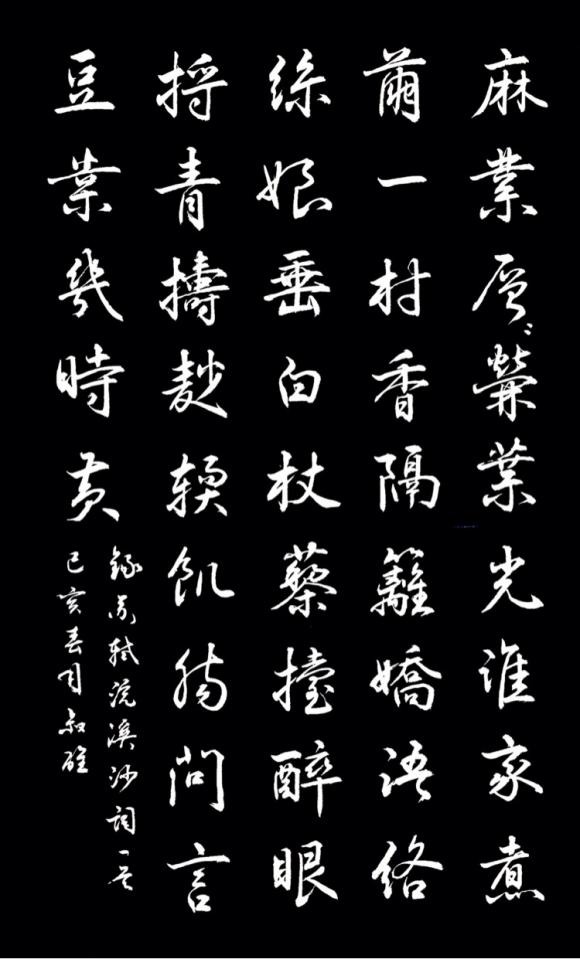 麻葉層〻檾葉光誰家煮
繭一村香隔籬嬌語絡
絲娘垂白杖藜擡醉眼
捋青擣麨輭飢腸問言
豆葉幾時黄
錄蘇軾浣溪沙詞一首
己亥春月